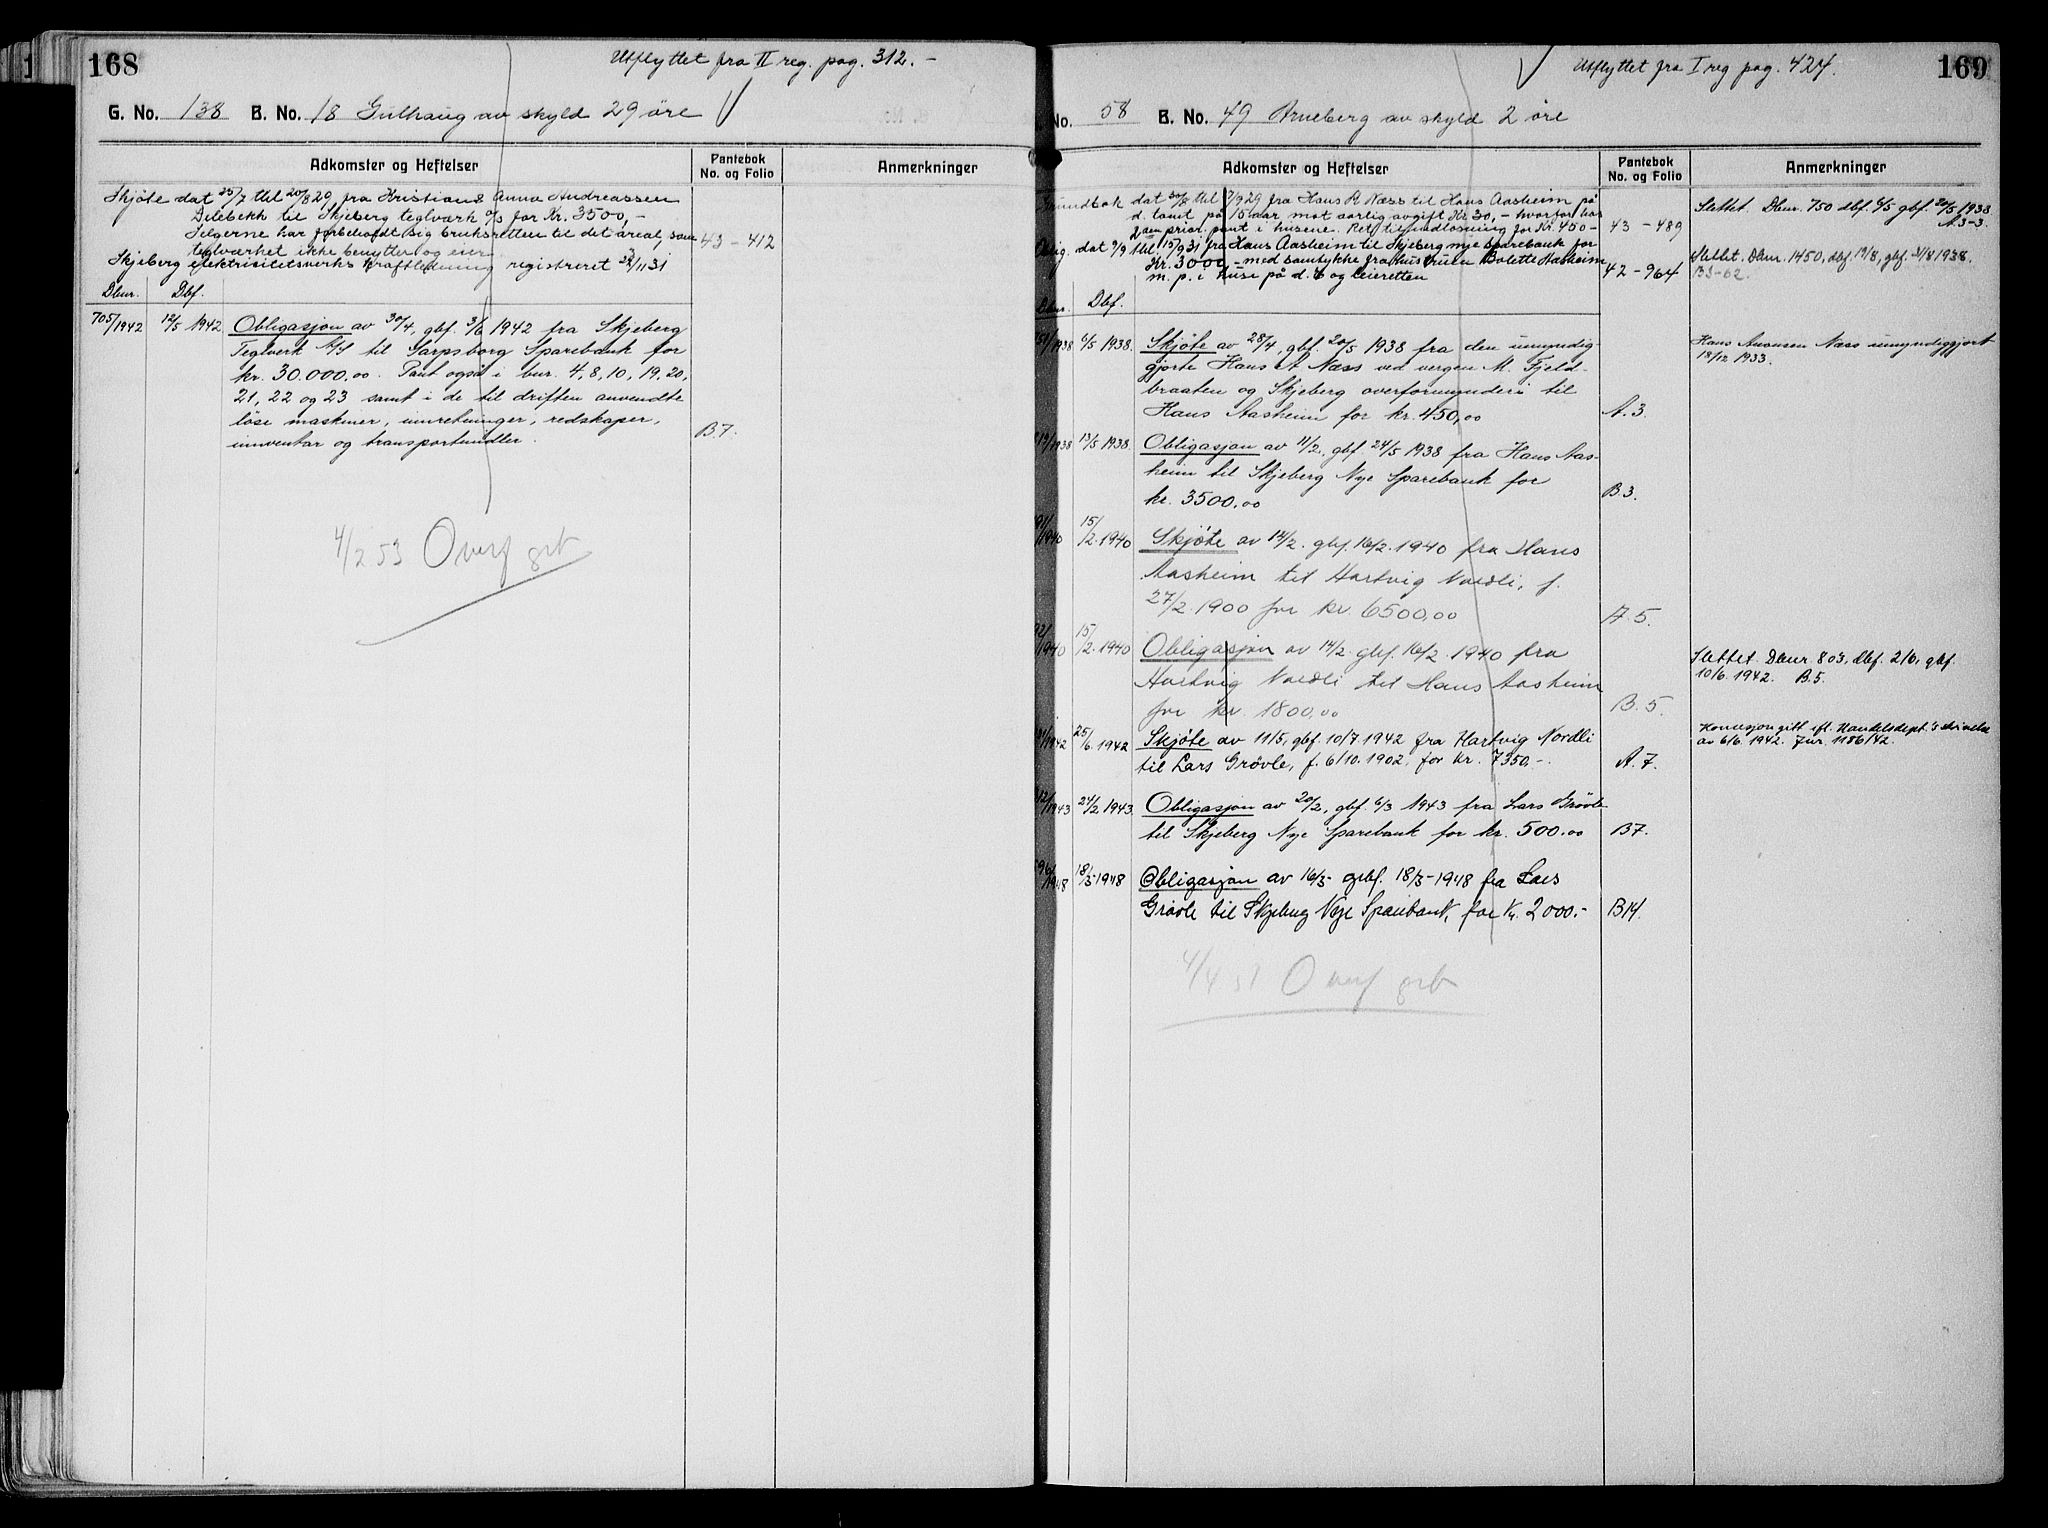 168
Utflyttet fra II reg. pag. 312. -
G. No. 138 B. No. 18 Gulhaug av skyld 29 öre
Adkomster og Heftelser
Pantebok
No. og Folio
Anmerkninger
Skjöte dat 25/7 thl 20/8 29 fra Kristian & Anna Andreassen
Delebekk til Skjeberg teglverk a/s for Kr. 3500,-
Selgerne har forbeholdt sig bruksretten til det areal, som
teglverket ikke benytter og eier.
43 - 412
Skjeberg elektrisitetsverks kraftledning registreret 24/11 31
Dbnr. Dbf.
705/1942 12/5 1942 Obligasjon av 30/4, gbf. 3/6 1942 fra Skjeberg
Teglverk A/S til Sarpsborg Sparebank for
kr. 30.000,00. Pant også i bnr. 4, 8, 10, 19, 20,
21, 22 og 23 samt i de til driften anvendte
löse maskiner, innretninger, redskaper,
innventar og transportmidler.
B.7.
4/2 53 Overf grb
169
Utflyttet fra I reg pag. 424.
No. 58 B. No. 49 Arneberg av skyld 2 öre
Adkomster og Heftelser
Pantebok
No. og Folio
Anmerkninger
Grundbok dat 30/8 thl 17/9 29 fra Hans A Næss til Hans Aasheim på
d. tomt på 15 aar mot aarlig avgift Kr 30,- hvorfor has
2den prior. pant i husene. Ret til indlösning for Kr. 450 -
43 - 489
Slettet. Dbnr. 750 dbf. 6/5 gbf. 20/5 1938
A.3-3.
Oblig. dat 9/9 thl 15/9 31 fra Hans Aasheim til Skjeberg nye sparebank for
Kr. 3000,- med samtykke fra hustruen Bolette Aasheim
m. p. i huse på d. t. og leieretten
42 - 964
Slettet. Dbnr. 1450, dbf. 19/8, gbf. 31/8 1938.
B3-62.
Dbnr. Dbf.
751/1938 6/5 1938. Skjöte av 28/4, gbf. 20/5 1938 fra den umyndig-
gjorte Hans A Næss ved vergen M. Fjeld-
braaten og Skjeberg overformynderi til
Hans Aasheim for kr. 450,00
A.3.
Hans Aronsen Næss umyndiggjort
18/12 1933.
/1938 13/5 1938. Obligasjon av 11/2, gbf. 24/5 1938 fra Hans Aas-
heim til Skjeberg Nye Sparebank for
kr. 3500,00
B.3.
/1940 15/2. 1940 Skjöte av 14/2. gbf. 16/2. 1940 fra Hans
Aasheim til Hartvig Nordli, f.
27/2. 1900 for kr. 6500,00
A.5.
/1940 15/2. 1940 Obligasjon av 14/2. gbf. 16/2. 1940 fra
Hartvig Nordli til Hans Aasheim
for kr. 1800,00
B.5.
Slettet. Dbnr. 803, dbf. 2/6, gbf.
10/6. 1942. B.5.
/1942 25/6. 1942 Skjöte av 11/5, gbf. 10/7 1942 fra Hartvig Nordli
til Lars Grövle, f. 6/10. 1902, for kr. 7350,-.
A.7.
Konsesjon gitt ifl. Handelsdept.'s skrivelse
av 6/6. 1942. Jnr. 1186/42.
/1943 24/2 1943. Obligasjon av 20/2, gbf. 6/3 1943 fra Lars Grövle
til Skjeberg Nye Sparebank for kr. 500,00
B7.
/1948 18/5 1948 Obligasjon av 16/5 gbf. 18/5-1948 fra Lars
Grövle til Skjeberg Nye Sparebank, for kr. 2 000.-
B14.
4/4 51 Overf grb